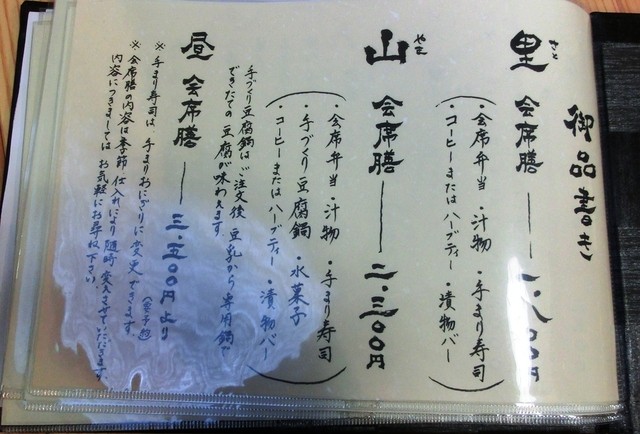 御品書き
里 会席膳 ―― 一、八〇〇円
さと
(・会席弁当 ・汁物 ・手まり寿司
・コーヒーまたはハーブティー ・漬物バー)
山 会席膳 ―― 二、三〇〇円
やま
(・会席弁当 ・汁物 ・手まり寿司
・手づくり豆腐鍋 ・水菓子
・コーヒーまたはハーブティー ・漬物バー)
手づくり豆腐鍋はご注文後 豆乳から専用鍋で
できたての豆腐が味わえます。
昼 会席膳 ―― 三、五〇〇円より
(要予約)
※手まり寿司は、手まりおにぎりに変更できます
※会席膳の内容は季節、仕入れにより随時変えさせていただきます。
内容につきましては お気軽にお尋ね下さい。